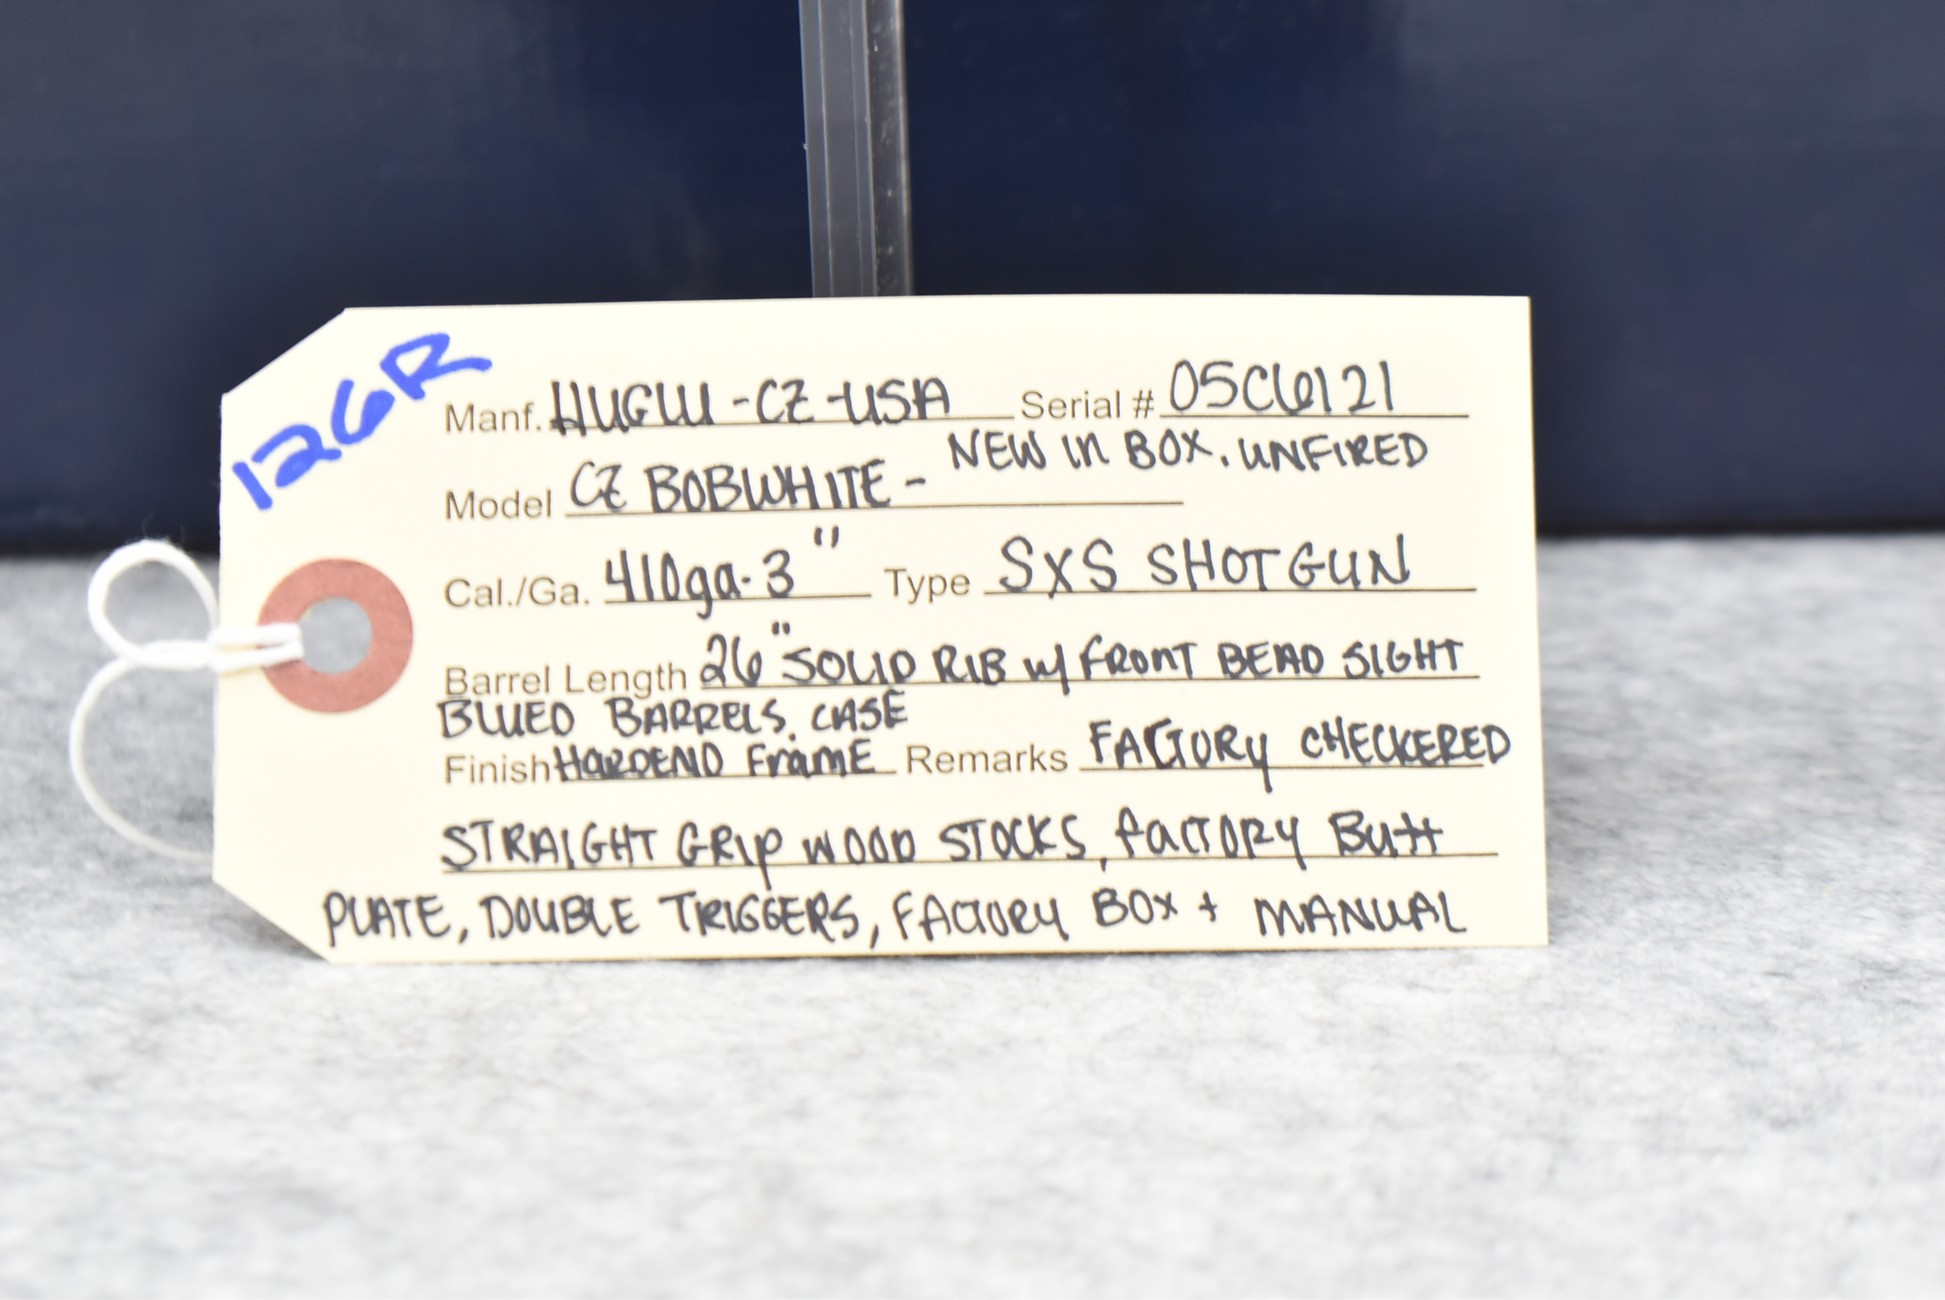 126R
Manf. HUGLU-CZ-USA Serial # 05C6121
NEW IN BOX. UNFIRED
Model CZ BOBWHITE -
Cal./Ga. 410ga-3" Type SXS SHOTGUN
Barrel Length 26" SOLID RIB w/ FRONT BEAD SIGHT
BLUED BARRELS. CASE
Finish HARDEND FramE Remarks FACTORY CHECKERED
STRAIGHT GRIP WOOD STOCKS, FACTORY Butt
PLATE, DOUBLE TRIGGERS, FACTORY BOX + MANUAL